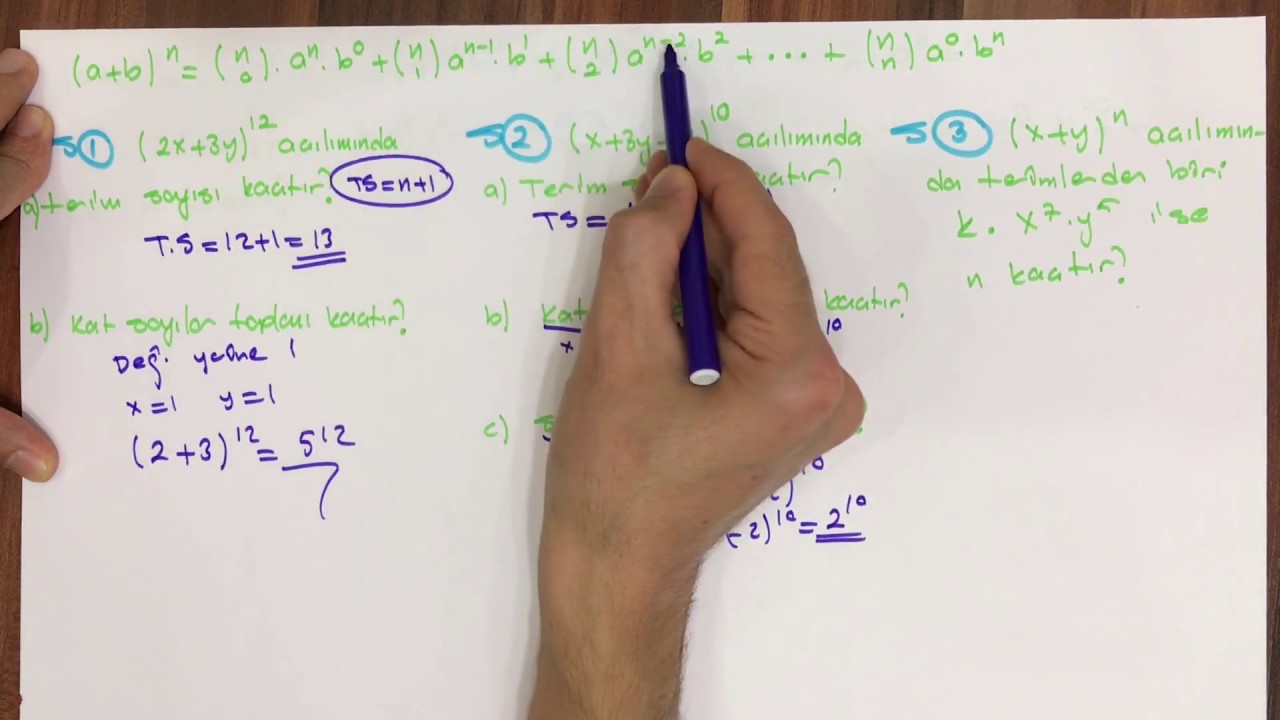 (a+b)ⁿ = (n 0) · aⁿ · b⁰ + (n 1) aⁿ⁻¹ · b¹ + (n 2) aⁿ⁻² · b² + ... + (n n) a⁰ · bⁿ
S 1 (2x+3y)¹² açılımında
a) terim sayısı kaçtır? TS=n+1
T.S = 12+1 = 13
b) Kat sayılar toplamı kaçtır?
Değ. yerine 1
x=1 y=1
(2+3)¹² = 5¹²
S 2 (x+3y )¹⁰ açılımında
a) Terim kaçtır?
TS =
b) kat kaçtır?
x 10
c)
-2)¹⁰ = 2¹⁰
S 3 (x+y)ⁿ açılımın-
da terimlerden biri
k. x⁷.y⁵ ise
n kaçtır?